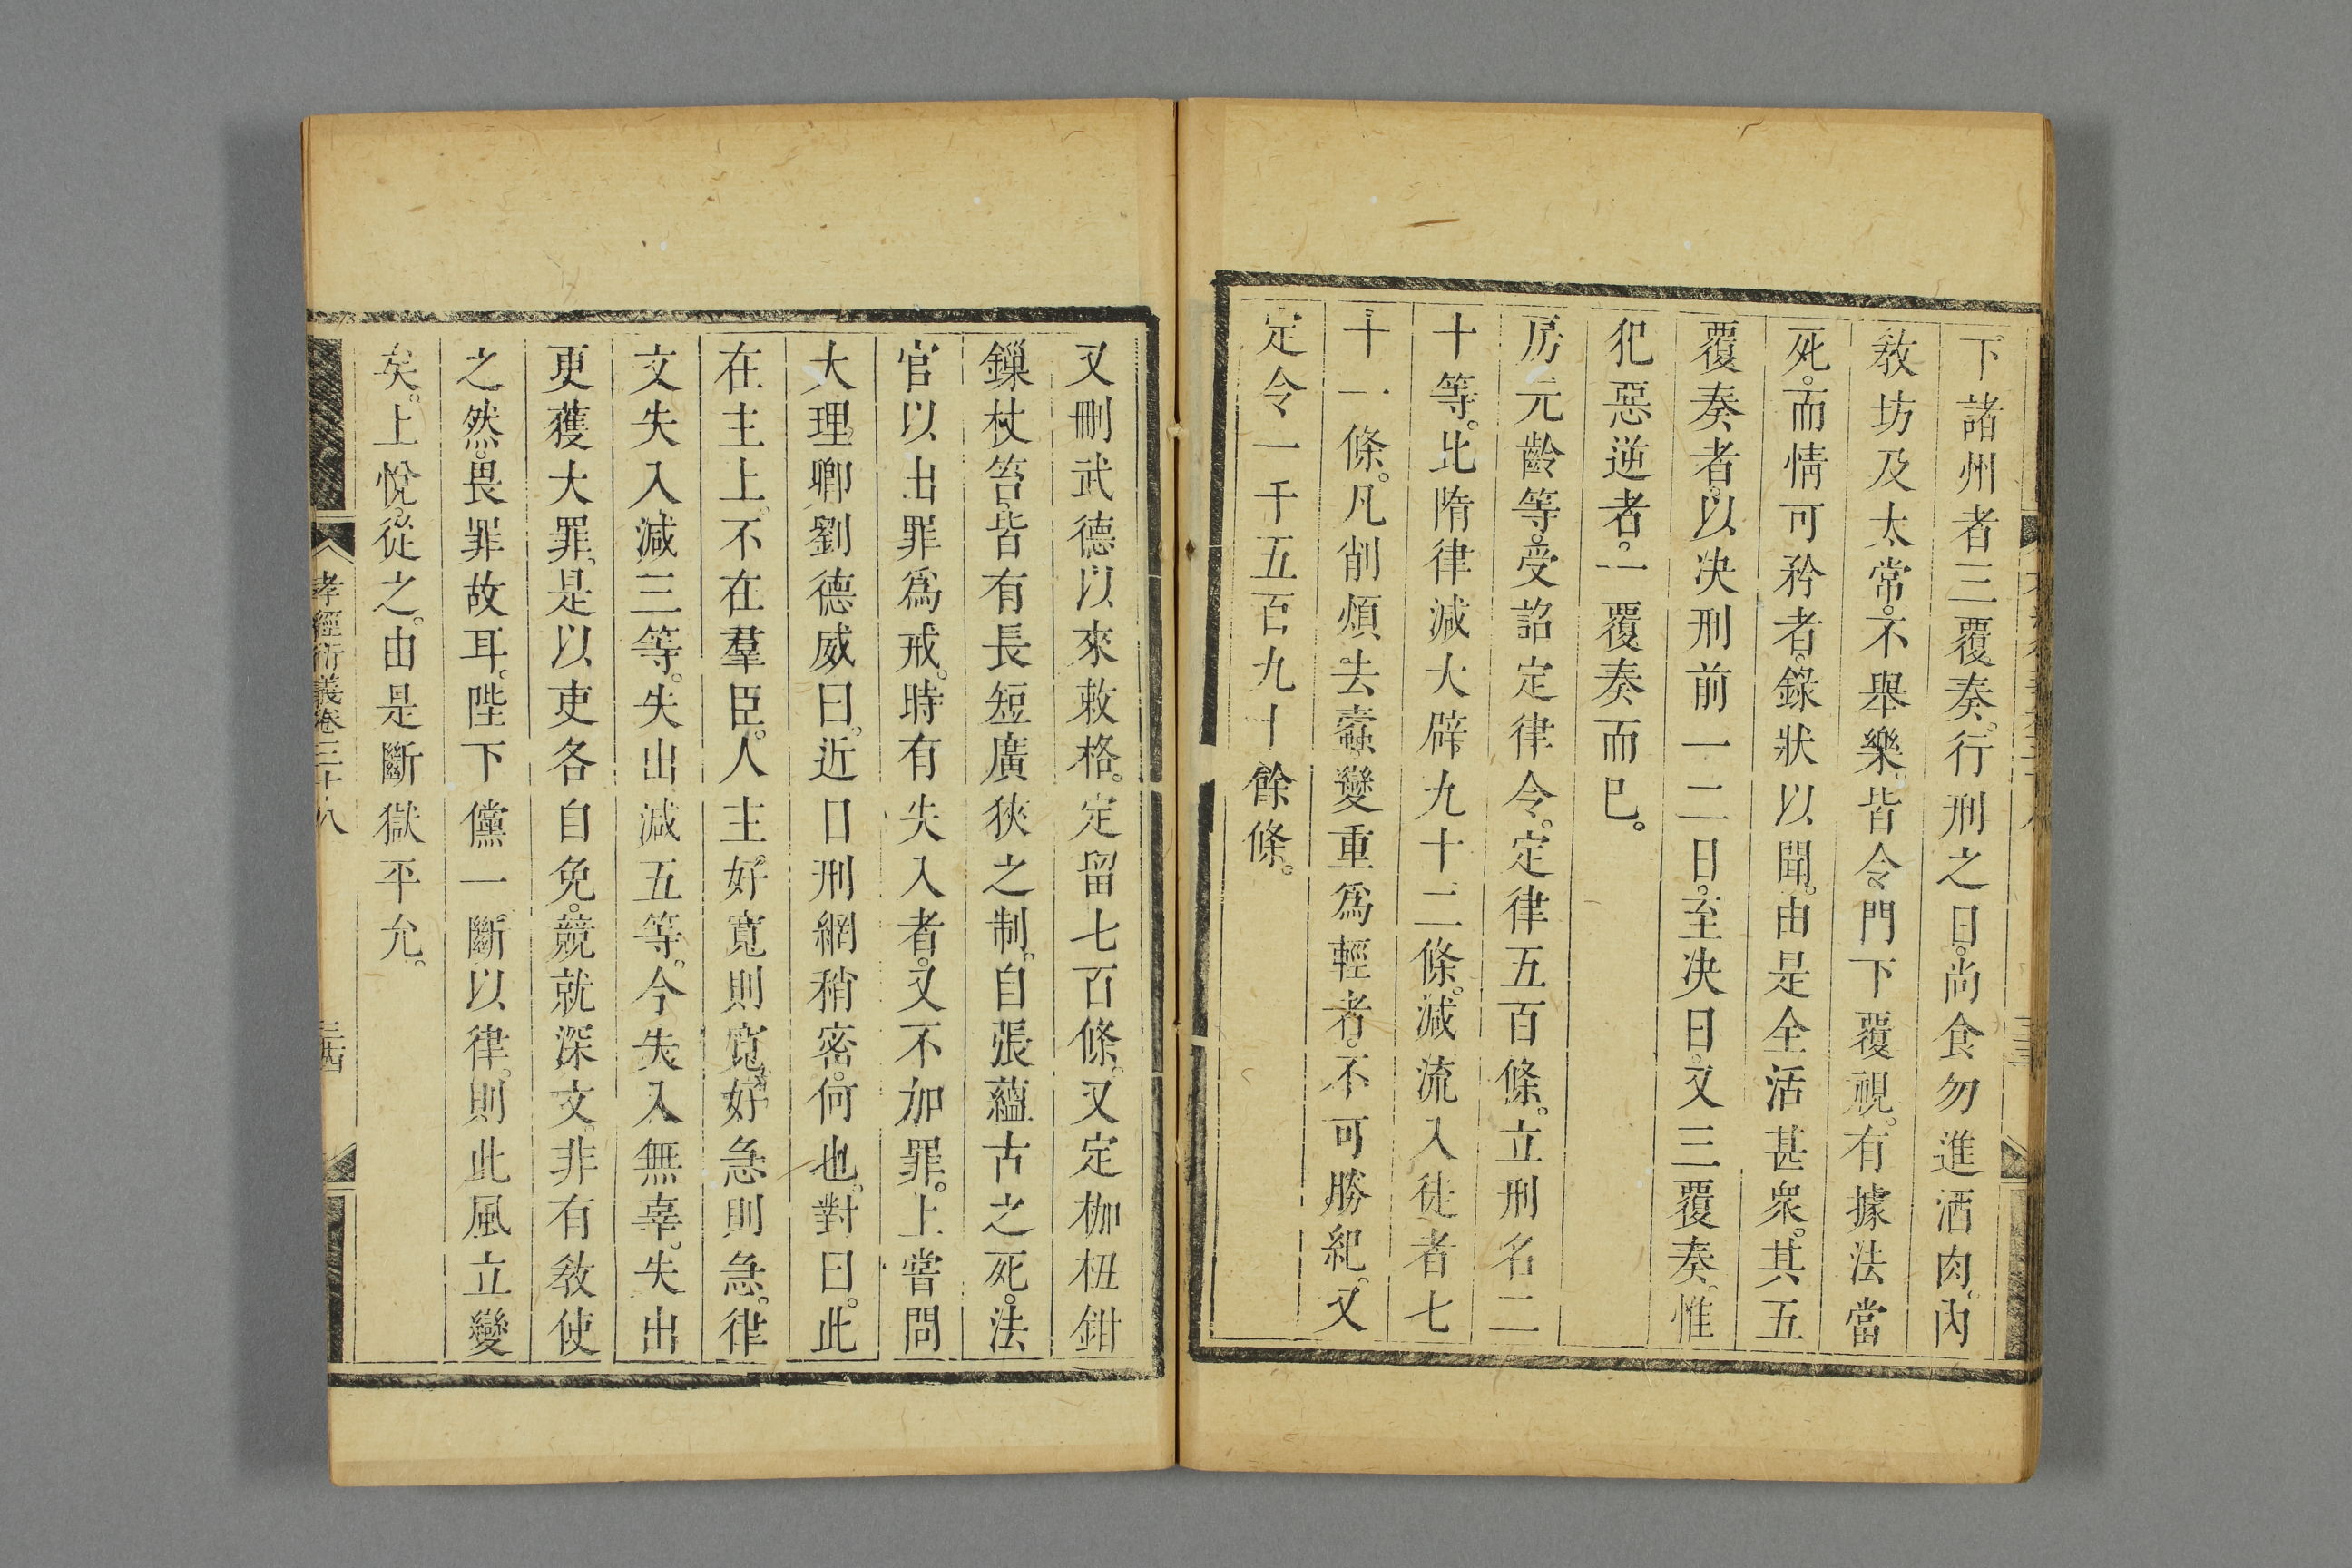 下諸州者三覆奏。行刑之日。尚食勿進酒肉。內
敎坊及太常。不舉樂。皆令門下覆視。有據法當
死。而情可矜者。錄狀以聞。由是全活甚衆。其五
覆奏者。以決刑前一二日。至決日。又三覆奏。惟
犯惡逆者。一覆奏而已。
房元齡等。受詔定律令。定律五百條。立刑名二
十等。比隋律減大辟九十二條。減流入徒者七
十一條。凡削煩去蠹變重爲輕者。不可勝紀。又
定令一千五百九十餘條。
又刪武德以來敕格。定留七百條。又定枷杻鉗
鏁杖笞。皆有長短廣狹之制。自張蘊古之死。法
官以出罪爲戒。時有失入者。又不加罪。上嘗問
大理卿劉德威曰。近日刑網稍密。何也。對曰。此
在主上。不在羣臣。人主好寬則寬。好急則急。律
文失入減三等。失出減五等。今失入無辜。失出
更獲大罪。是以吏各自免。競就深文。非有敎使
之然。畏罪故耳。陛下儻一斷以律。則此風立變
矣。上悅從之。由是斷獄平允。
孝經衍義卷三十八
三十四